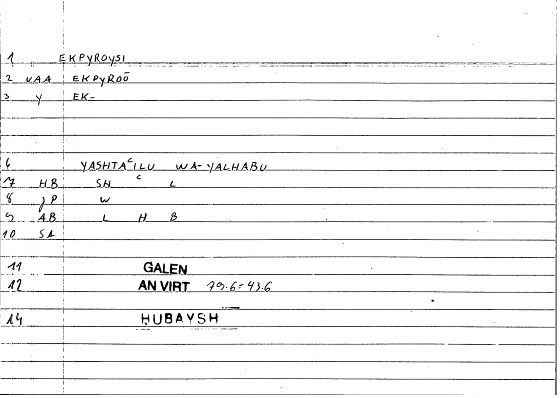 1 EKPYROYSI
2 VAA EKPYROŌ
3 Y EK-
6 YASHTAᶜILU WA-YALHABU
7 HB SH ᶜ L
8 JP W
9 AB L H B
10 SA
11 GALEN
12 AN VIRT 79.6=43.6
14 ḤUBAYSH